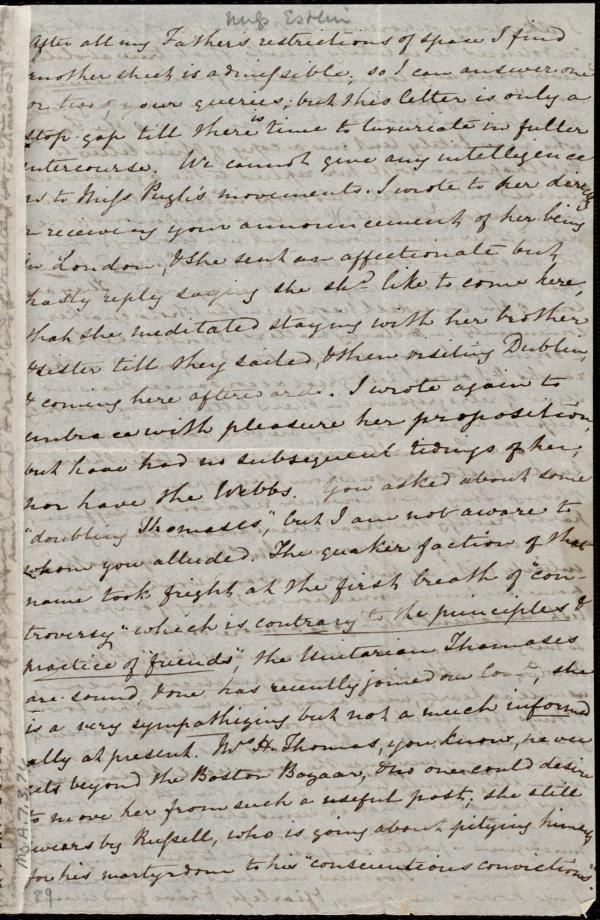 Miss Estlin
After all my Father's restrictions of space I find
another sheet is admissible, so I can answer one
or two of your queries; but this letter is only a
stop-gap till there is time to luxuriate in fuller
intercourse. We cannot give any intelligence
as to Miss Pugh's movements. I wrote to her directly
on receiving your announcement of her being
in London, & she sent an affectionate but
hasty reply saying she shd. like to come here,
that she meditated staying with her brother
& sister till they sailed, & then visiting Dublin,
& coming here afterwards. I wrote again to
embrace with pleasure her proposition,
but have had no subsequent tidings of her,
nor have the Webbs. You asked about some
"doubting Thomases", but I am not aware to
whom you alluded. The quaker faction of that
name took fright at the first breath of "con-
troversy" which is contrary to the principles &
practice of "friends", the Unitarian Thomases
are sound, & one has recently joined our Comtee, she
is a very sympathizing but not a much informed
ally at present. Mrs. H. Thomas, you know, never
gets beyond the Boston Bazaar, & no one could desire
to move her from such a useful post; she still
swears by Russell, who is going about pitying himself
for his martyrdom to his "conscientious convictions".
Ms.A.7.3.74
89